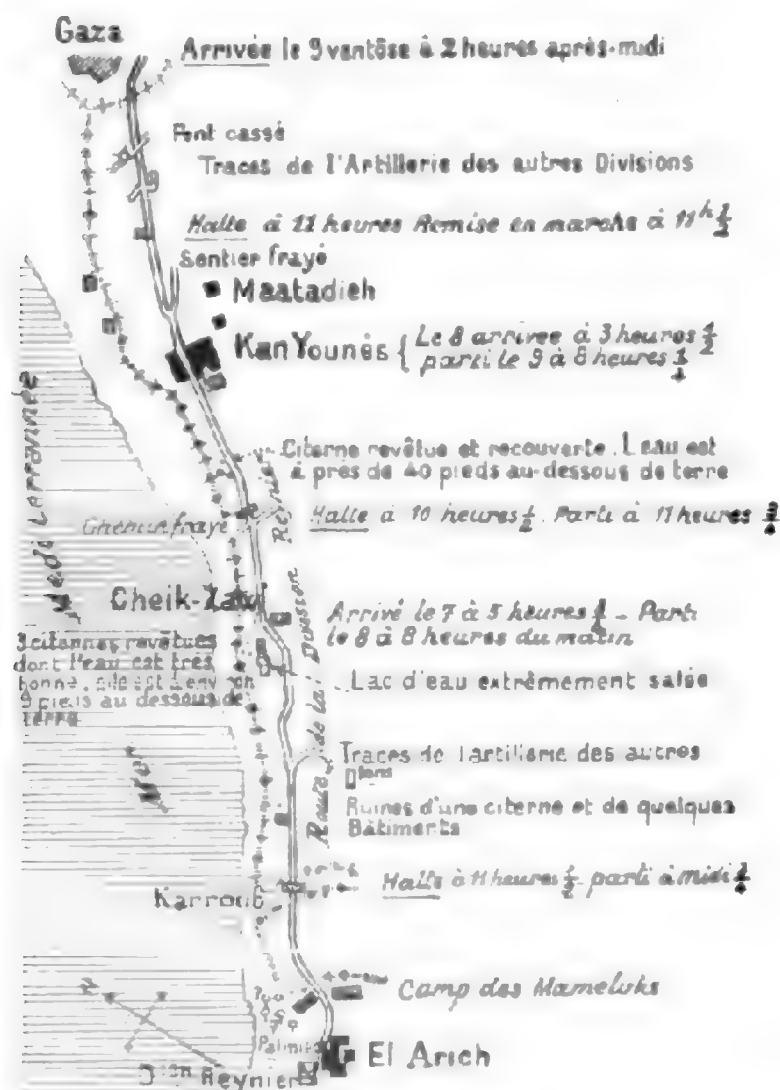 Gaza
Arrivée le 9 ventôse à 2 heures après-midi
Pont cassé
Traces de l'Artillerie des autres Divisions
Halte à 11 heures Remise en marche à 11h ½
Sentier frayé
Maatadieh
Kan Younès { Le 8 arrivée à 3 heures ½
parti le 9 à 8 heures ¼
Citerne revêtue et recouverte. L'eau est
à près de 40 pieds au-dessous de terre
Chemin frayé
Halte à 10 heures ½. Parti à 11 heures
Cheik-
Arrivé le 7 à 5 heures — Parti
le 8 à 8 heures du matin
3 citernes revêtues
dont l'eau est très
bonne, elle est à environ
9 pieds au dessous de
terre
Lac d'eau extrêmement salée
Route de la Division Reynier
Traces de l'artillerie des autres
Dions
Ruines d'une citerne et de quelques
Bâtiments
Mer
Halte à 11 heures ½ parti à midi
Camp des Mameluks
Palmiers
El Arich
Dion Reynier